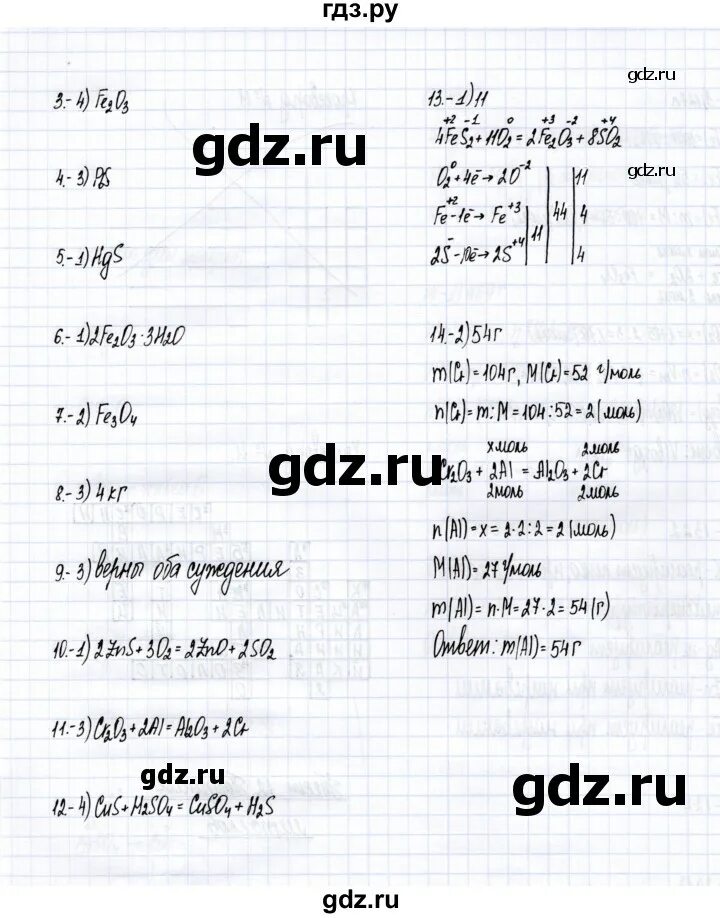 гдз.ру
3.-4) Fe2O3
4.-3) PbS
5.-1) HgS
6.-1) 2Fe2O3·3H2O
7.-2) Fe3O4
8.-3) 4 кг
9.-3) верны оба суждения
10.-1) 2ZnS+3O2=2ZnO+2SO2
11.-3) Cr2O3+2Al=Al2O3+2Cr
12-4) CuS+H2SO4=CuSO4+H2S
gdz.ru
gdz.ru
gdz.ru
13.-1) 11
+2 -1 0 +3 -2 +4
4FeS2+11O2=2Fe2O3+8SO2
gdz.ru
O2⁰+4ē→2O⁻² | | 11
Fe⁺²-1ē→Fe⁺³ | 11 | 44 | 4
2S⁻-10ē→2S⁺⁴ | 4
14.-2) 54г
m(Cr)=104г, M(Cr)=52 г/моль
n(Cr)=m:M=104:52=2(моль)
xмоль 2моль
Cr2O3+2Al=Al2O3+2Cr
2моль 2моль
n(Al)=x=2·2:2=2(моль)
M(Al)=27 г/моль
m(Al)=n·M=27·2=54(г)
Ответ: m(Al)=54г
gdz.ru
gdz.ru
gdz.ru